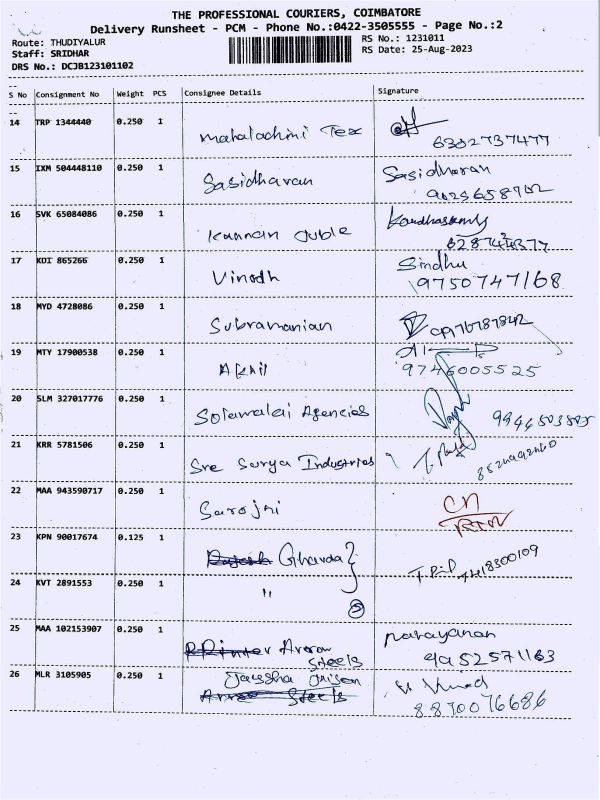 THE PROFESSIONAL COURIERS, COIMBATORE
Delivery Runsheet - PCM - Phone No.:0422-3505555 - Page No.:2
Route: THUDIYALUR
Staff: SRIDHAR
DRS No.: DCJB123101102
RS No.: 1231011
RS Date: 25-Aug-2023
S No Consignment No Weight PCS Consignee Details Signature
14 TRP 1344440 0.250 1 Mahalachmi Tex
6382737477
15 IXM 504448110 0.250 1 Sasidharan Sasidharan
16 SVK 65084086 0.250 1 Kannan
17 KDI 865266 0.250 1 Vinodh Sindhu
9750747168
18 MYD 4728086 0.250 1 Subramanian
19 MTY 17900538 0.250 1 Akhil
9746005525
20 SLM 327017776 0.250 1 Solamalai Agencies
21 KRR 5781506 0.250 1 Sre Surya Industries
22 MAA 943590717 0.250 1 Sarojni
23 KPN 90017674 0.125 1 7418300109
24 KVT 2891553 0.250 1 "
25 MAA 102153907 0.250 1 Arrow Steels Narayanan
9952571163
26 MLR 3105905 0.250 1
8870076686